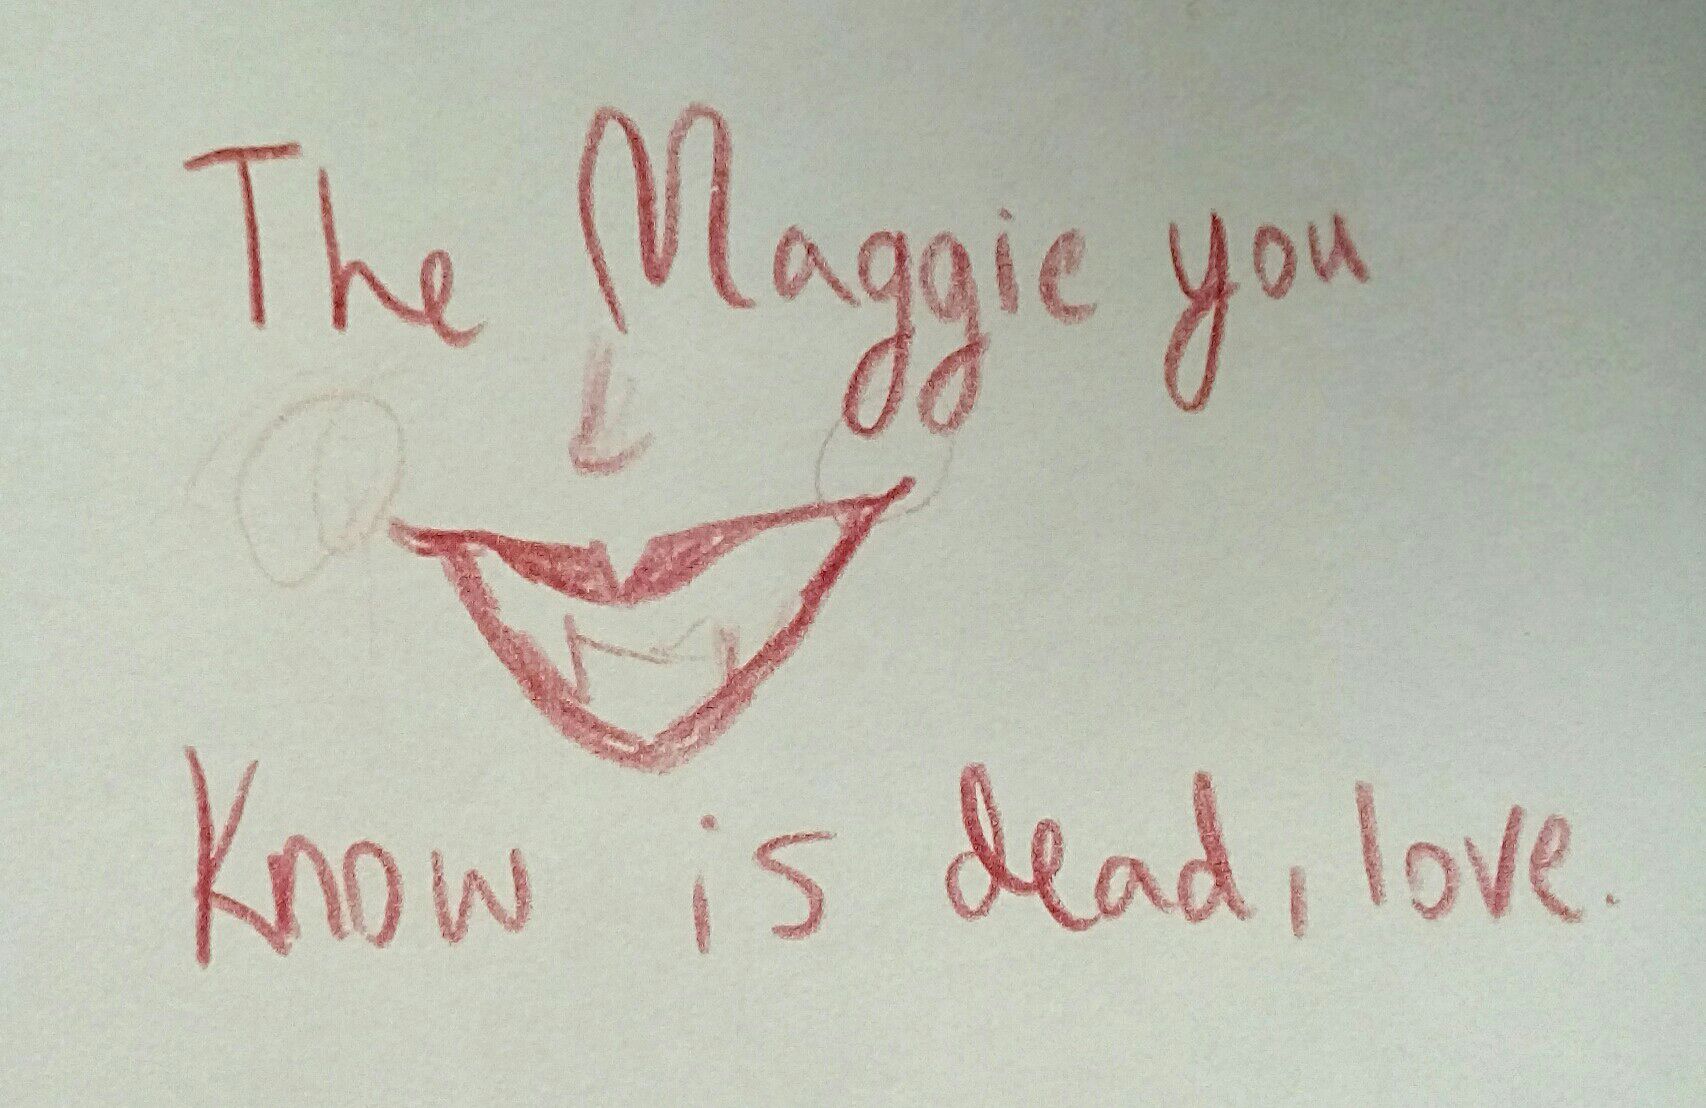 The Maggie you
know is dead, love.